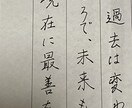 過去は変わ
ろで、未来も
現在に最善を